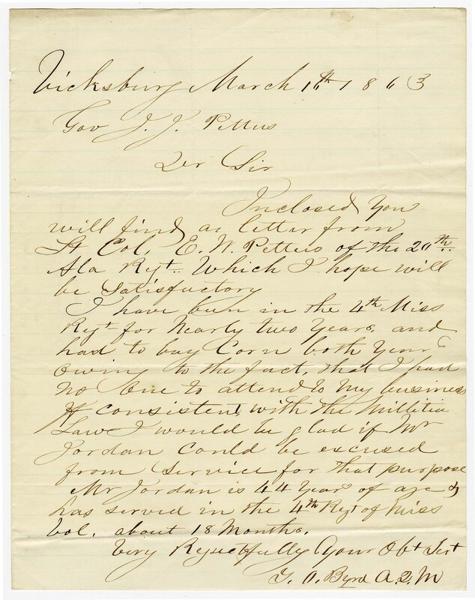 Vicksburg March 16th 1863
Gov J. J. Pettus
Der Sir
Inclosed You
will find a letter from
Lt Col. E. W. Pettus of the 20th
Ala Regt. Which I hope will
be Satisfactory
I have been in the 4th Miss
Regt for Nearly two Years, and
had to buy Corn both Years
Owing to the fact, that I had
no One to attend to My business
If consistent with the Millitia
Law I would be glad if Mr
Jordan could be excused
from Service for that purpose
Mr Jordan is 44 Years of age &
has served in the 4th Regt of Miss
Vol. about 18 Months.
Very Respectfully Your Obt Sert
Byrd A.Q.M